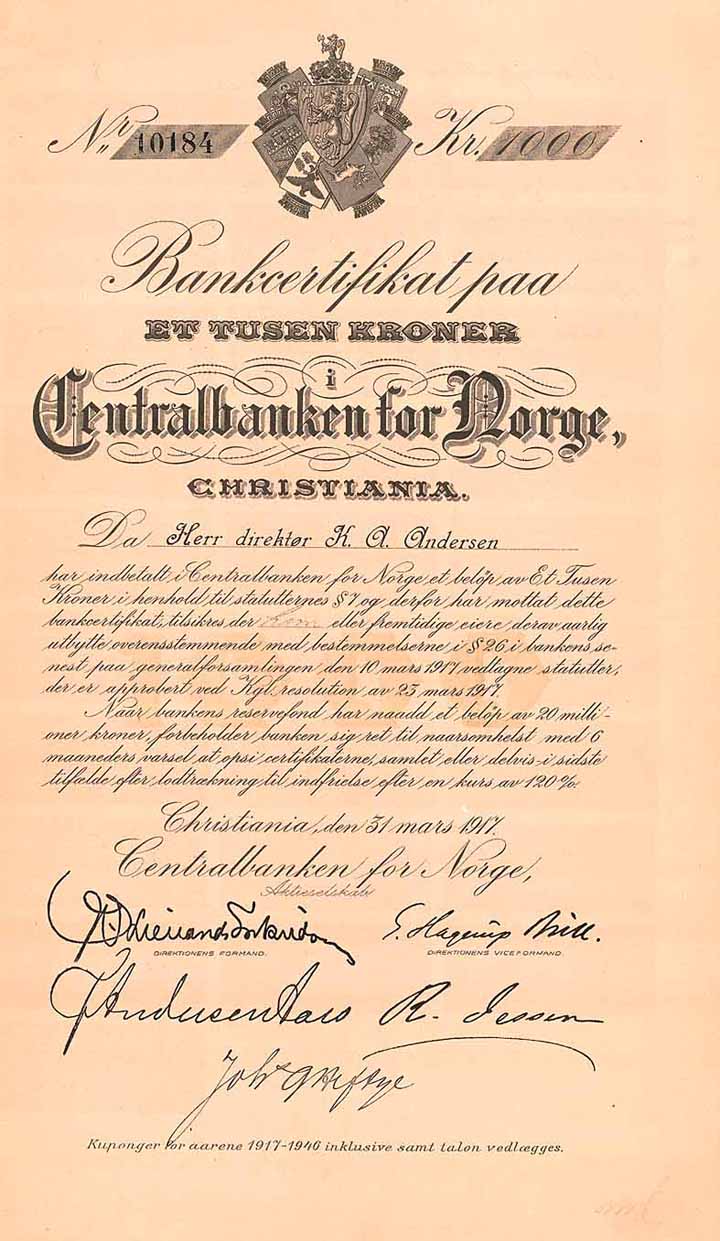 Nr. 10184
Kr. 1000
Bankcertifikat paa
ET TUSEN KRONER
i
Centralbanken for Norge,
CHRISTIANIA.
Da Herr direktør K. A. Andersen
har indbetalt i Centralbanken for Norge et beløp av Et Tusen
Kroner i henhold til statutternes § 7 og derfor har mottat dette
bankcertifikat, tilsikres der eller fremtidige eiere derav aarlig
utbytte overensstemmende med bestemmelserne i § 26 i bankens se-
nest paa generalforsamlingen den 10 mars 1917 vedtagne statutter,
der er approbert ved Kgl. resolution av 23 mars 1917.
Naar bankens reservefond har naadd et beløp av 20 milli-
oner kroner, forbeholder banken sig ret til naarsomhelst med 6
maaneders varsel at opsi certifikaterne, samlet eller delvis - i sidste
tilfælde efter lodtrækning til indfrielse efter en kurs av 120 %.
Christiania, den 31 mars 1917.
Centralbanken for Norge,
Aktieselskab
DIREKTIONENS FORMAND.
S. Hagerup Bull.
DIREKTIONENS VICEFORMAND.
R. Jessen
Kuponger for aarene 1917-1946 inklusive samt talon vedlægges.